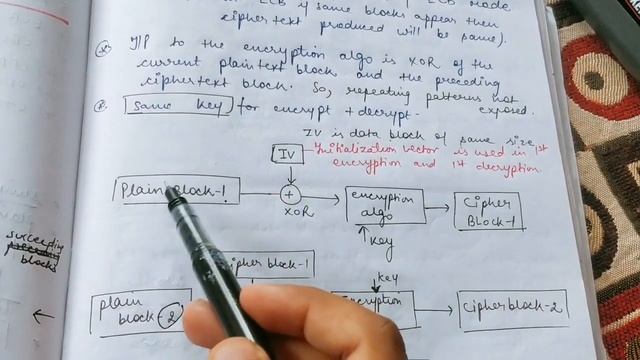 ECB if same blocks appear then
ciphertext produced will be same).
I/P to the encryption algo is XOR of the
current plaintext block and the preceding
ciphertext block. So, repeating patterns not
exposed.
Same key for encrypt + decrypt.
IV is data block of same size
IV
Initialization vector is used in 1st
encryption and 1st decryption.
Plain block-1
+
XOR
encryption
algo
Key
Cipher
Block-1
succeeding
blocks
cipher block-1
Key
plain
block-2
Encryption
cipherblock-2